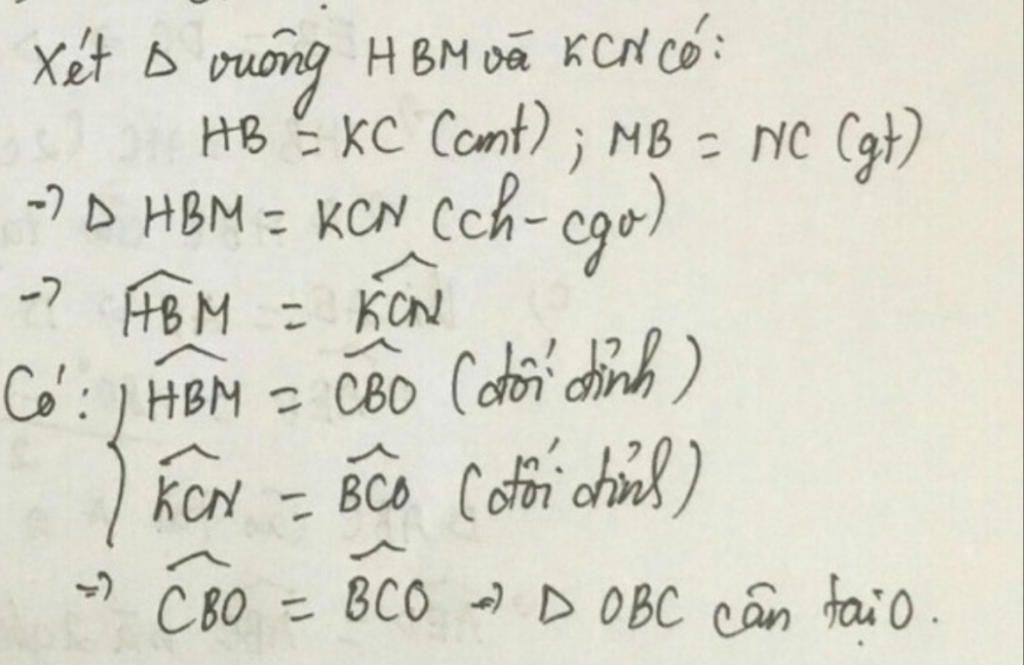 Xét Δ vuông HBM và KCN có:
HB = KC (cmt) ; MB = NC (gt)
→ Δ HBM = KCN (ch - cgv)
→ \widehat{HBM} = \widehat{KCN}
Có: { \widehat{HBM} = \widehat{CBO} (đối đỉnh)
\widehat{KCN} = \widehat{BCO} (đối đỉnh)
⇒ \widehat{CBO} = \widehat{BCO} → Δ OBC cân tại O.